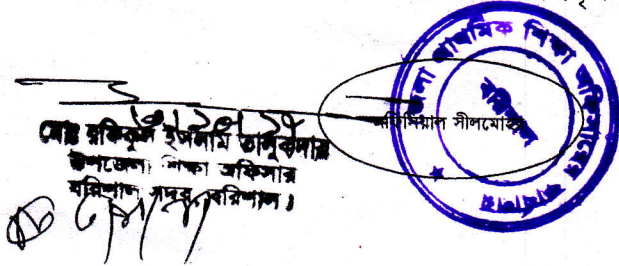 মোঃ রফিকুল ইসলাম তালুকদার
উপজেলা শিক্ষা অফিসার
বরিশাল সদর, বরিশাল।
অফিসিয়াল সীলমোহর
জেলা প্রাথমিক শিক্ষা অফিসারের কার্যালয়
বরিশাল